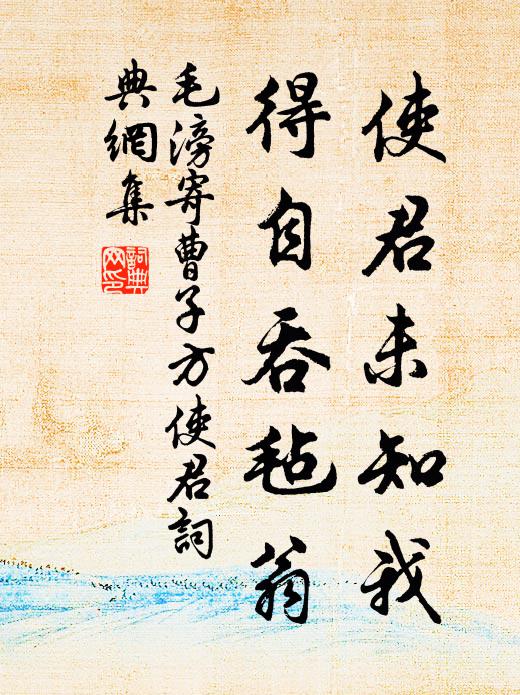 使君未知我
得自吞毡翁
毛滂寄曹子方使君詞
典網集
詞典網印